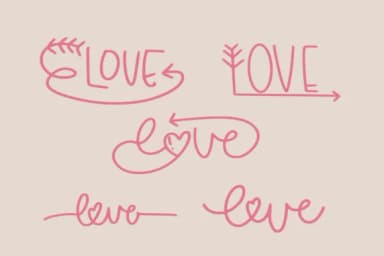 LOVE
LOVE
love
love
love